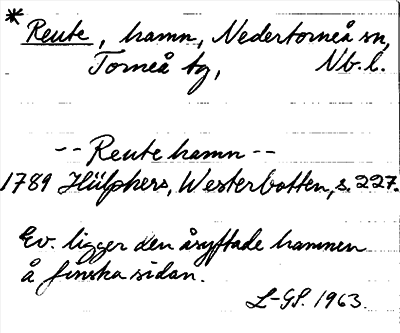 * Reute, hamn, Nedertorneå sn,
Torneå tg, Nb.l.
-- Reute hamn --
1789 Hülphers, Westerbotten, s. 227.
Ev. ligger den åsyftade hamnen
å finska sidan.
L-GS. 1963.